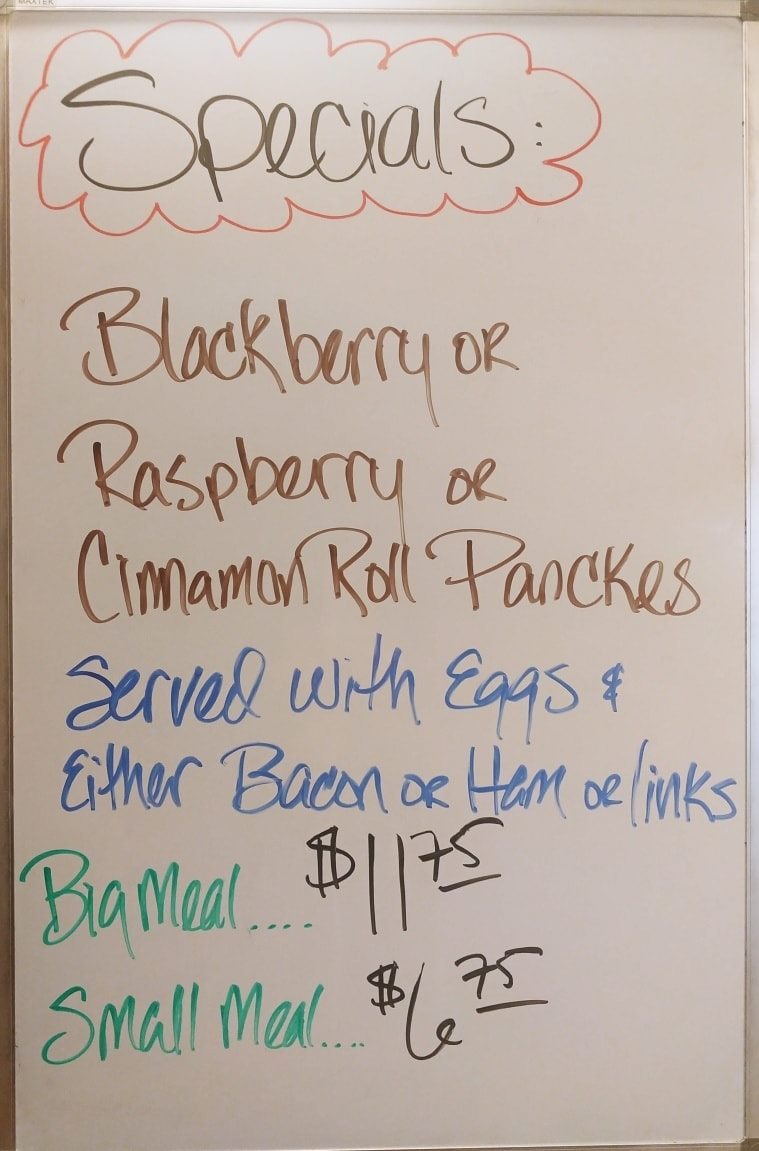 MAXTEK
Specials:
Blackberry or
Raspberry or
Cinnamon Roll Panckes
Served with Eggs &
Either Bacon or Ham or links
Big Meal.... $11 75
Small Meal.... $6 75